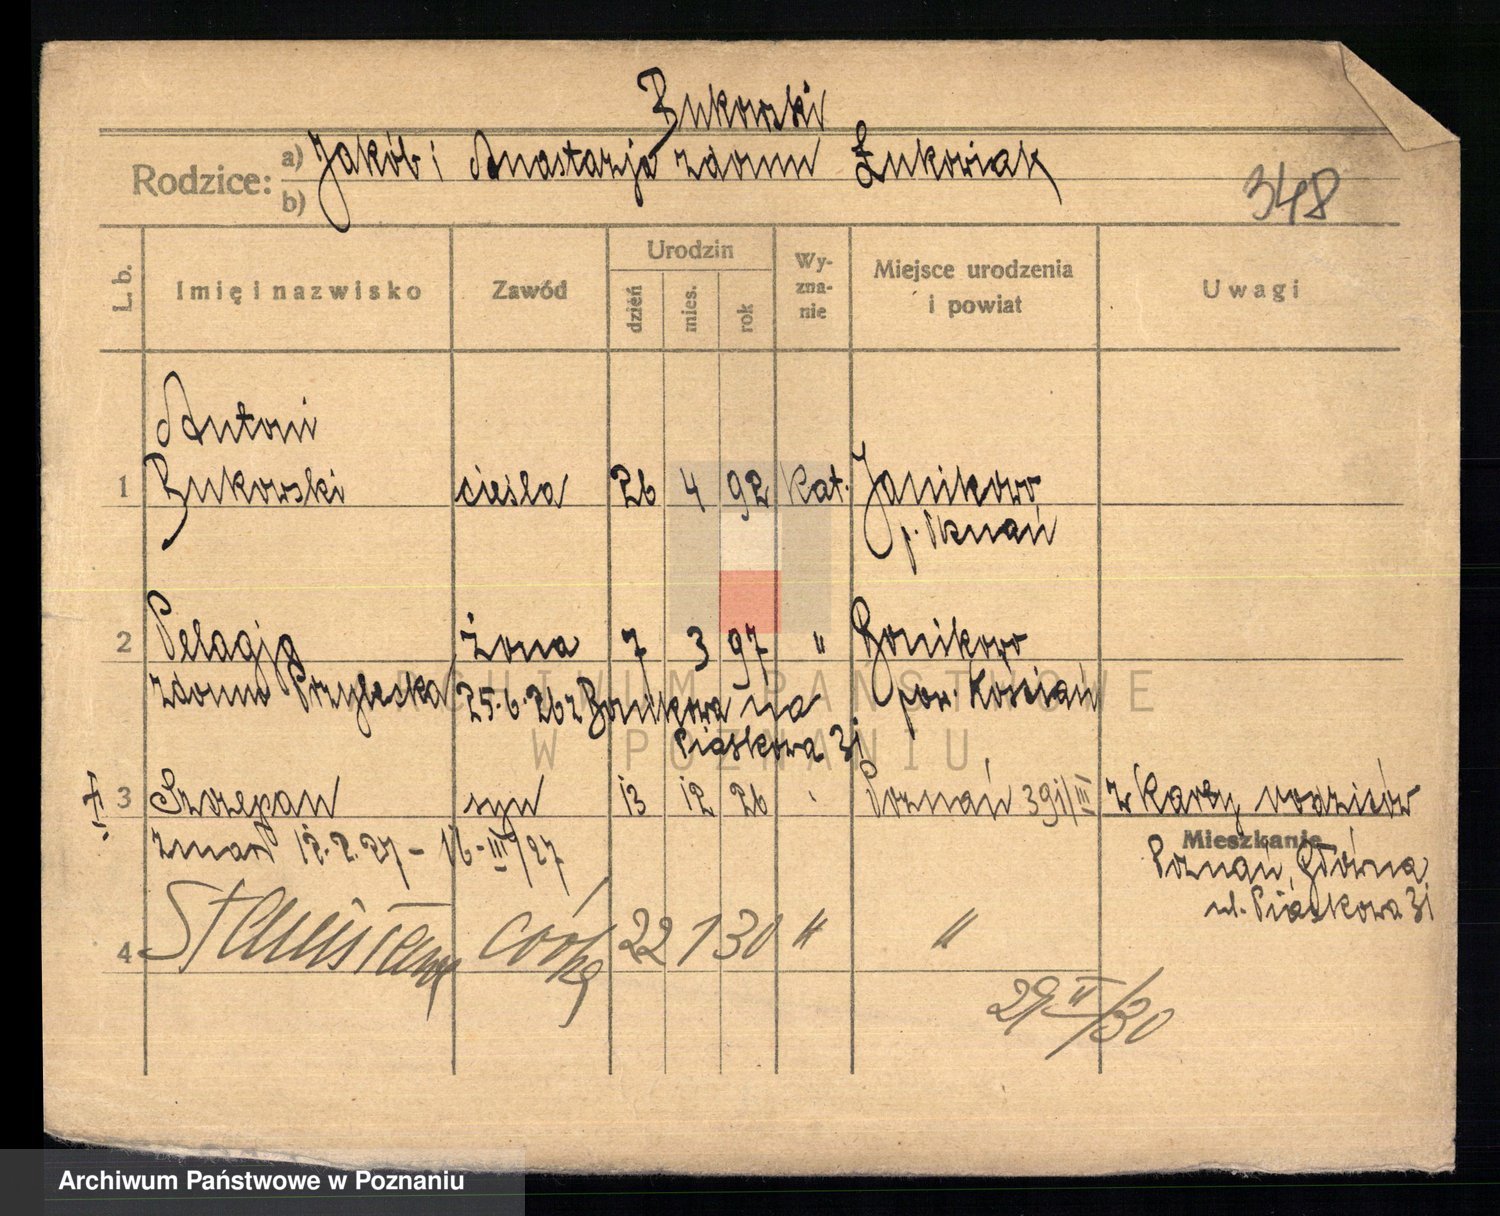 Bukowski
Rodzice: a) Jakób i Anastazja z domu Łukowiak
b)
348
L. b.
Imię i nazwisko
Zawód
Urodzin
dzień
mies.
rok
Wy-
zna-
nie
Miejsce urodzenia
i powiat
Uwagi
Antoni
1 Bukowski cieśla 26 4 92 kat. Janikowo
p. Poznań
2 Pelagja żona 7 3 97 " Bonikowo
z domu Przybecka 25.6.26 z Bonikowa na pow. Kościan
Piaskowa 31
3 Szczepan syn 13 12 26 Poznań 391/III z karty rodziców
zmarł 12.2.27 - 16-III/27
Mieszkanie
Poznań, Główna
ul. Piaskowa 31
4 Stanisława córka 22 1 30 " "
29 II/30
ARCHIWUM PAŃSTWOWE
W POZNANIU
Archiwum Państwowe w Poznaniu